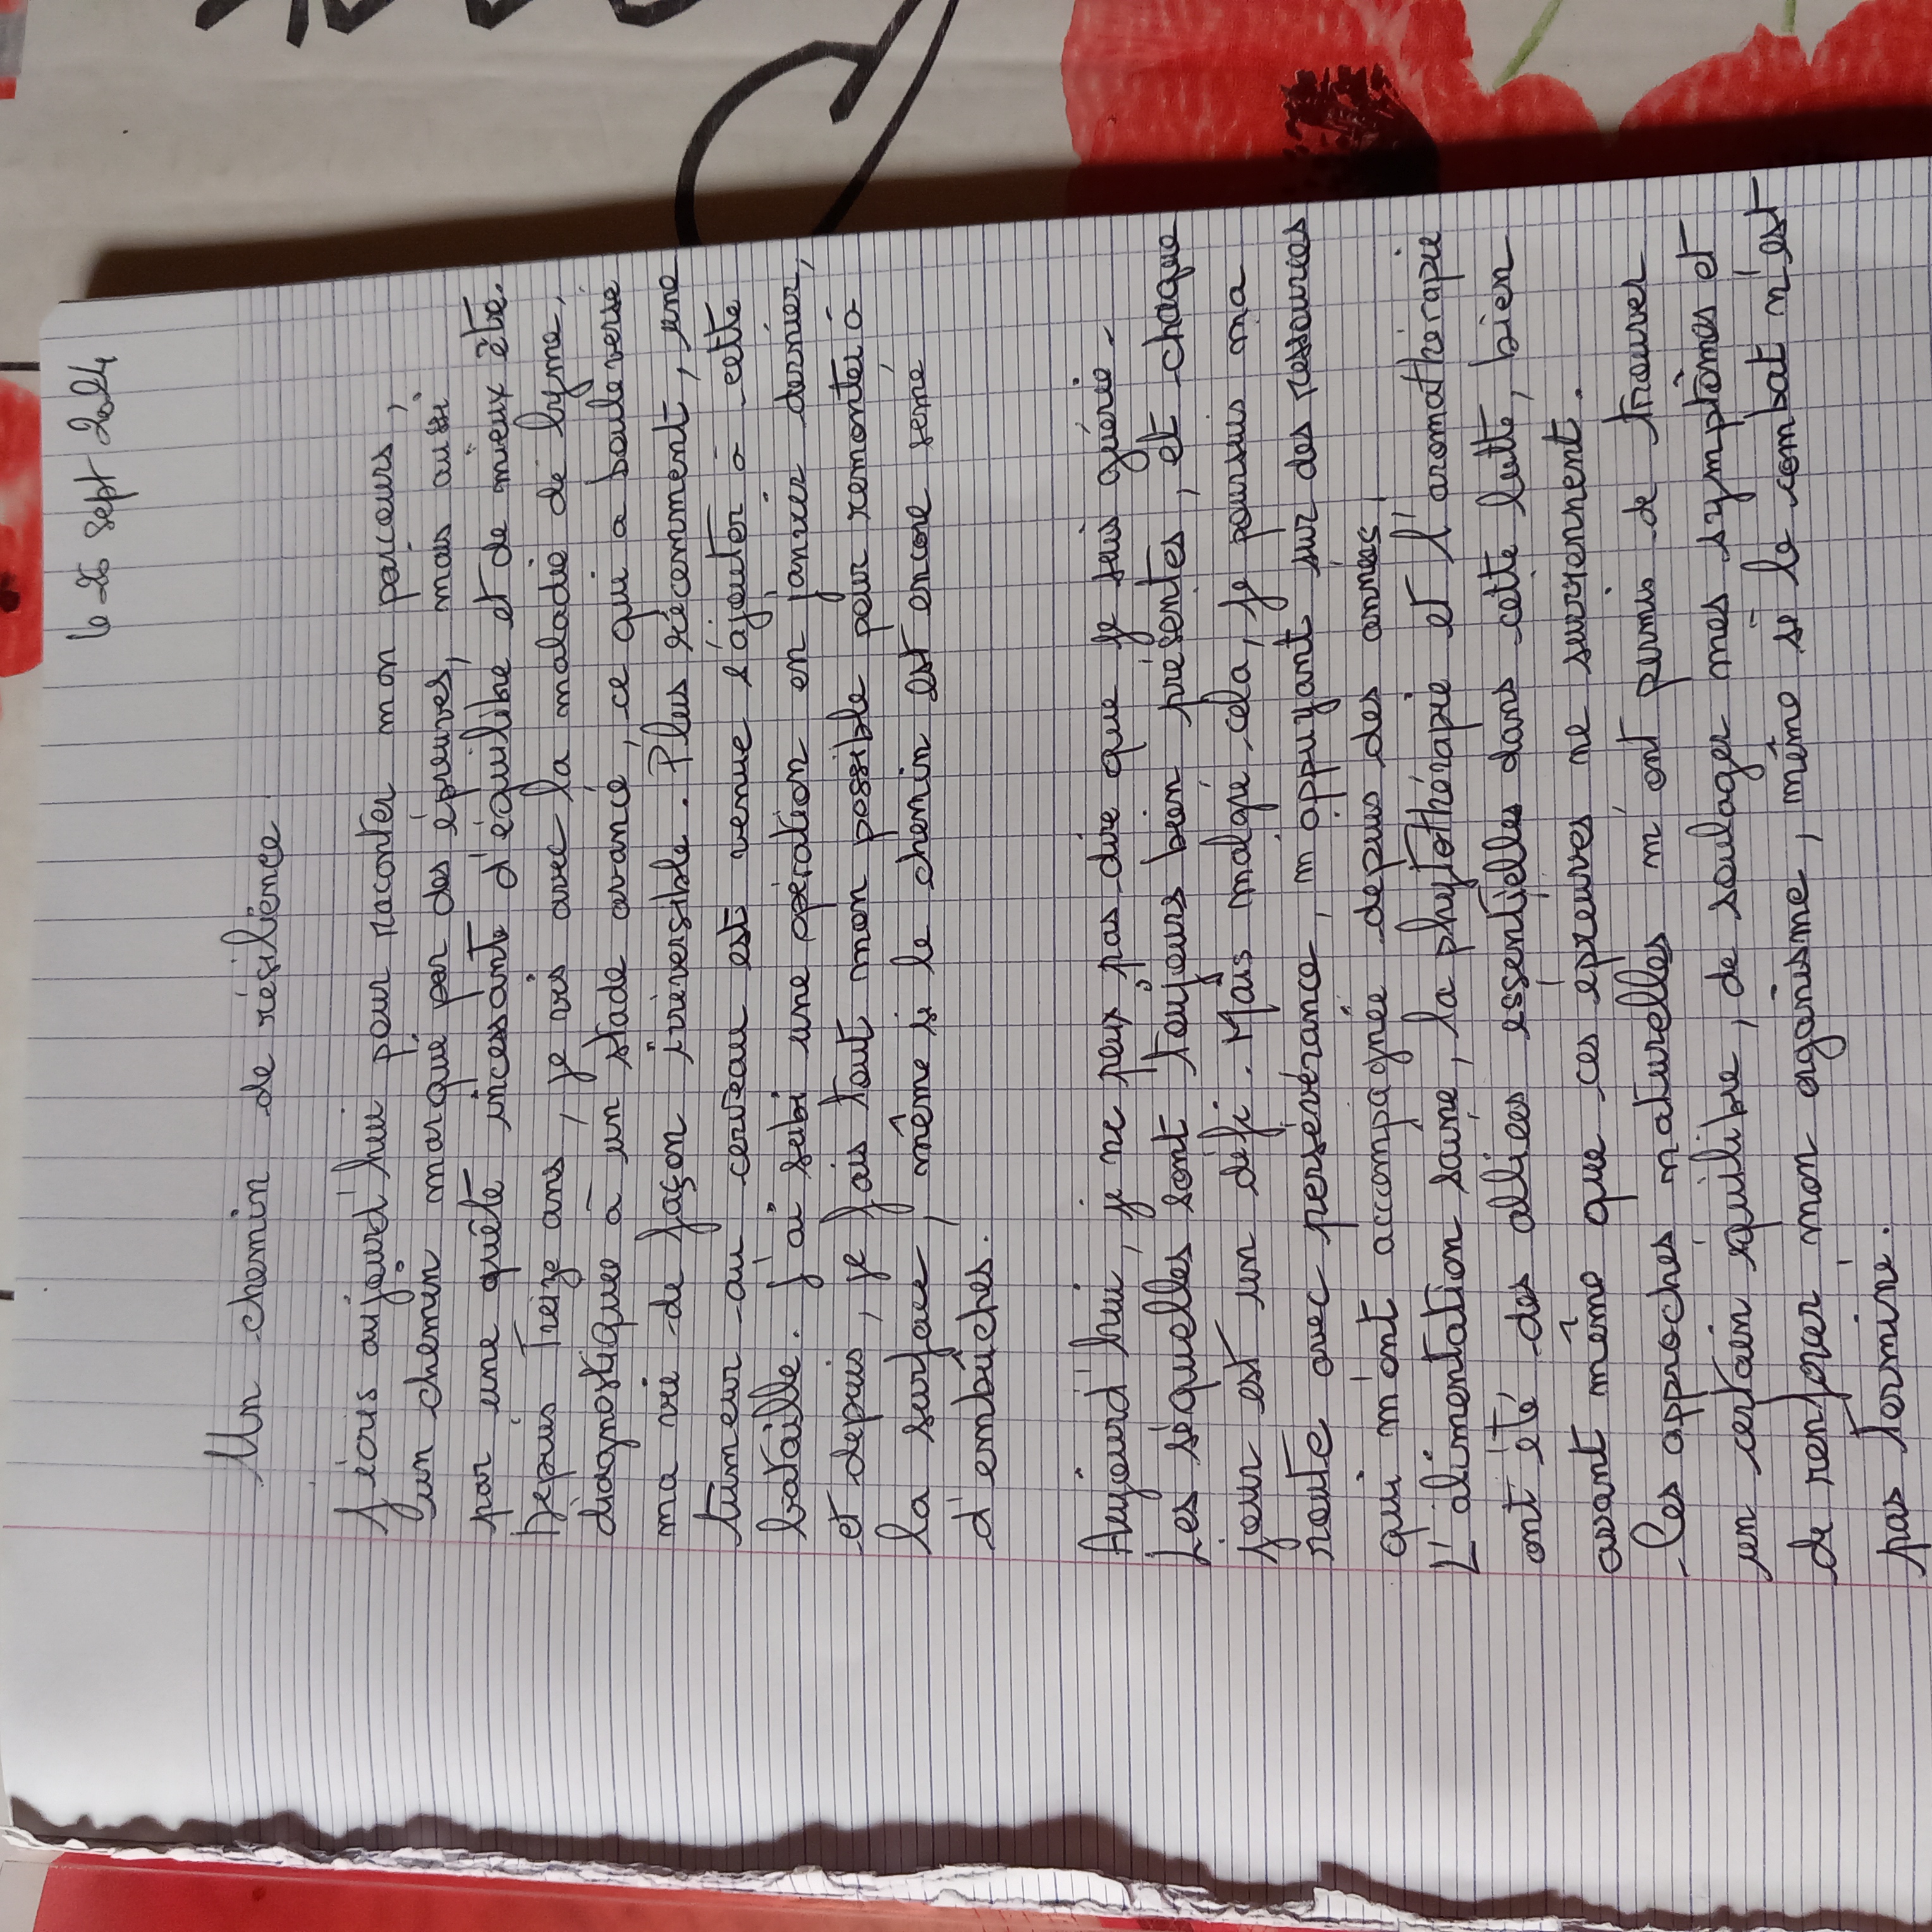 le 26 sept 2024
Un chemin de résilience.
J'écris aujourd'hui pour raconter mon parcours,
un chemin marqué par des épreuves, mais aussi
par une quête incessante d'équilibre et de mieux être.
Depuis treize ans, je vis avec la maladie de lyme,
diagnostiquée à un stade avancé, ce qui a bouleversé
ma vie de façon irréversible. Plus récemment, une
tumeur au cerveau est venue s'ajouter à cette
bataille. J'ai subi une opération en janvier dernier,
et depuis, je fais tout mon possible pour remonter à
la surface, même si le chemin est encore semé
d'embûches.
Aujourd'hui, je ne peux pas dire que je suis guérie.
Les séquelles sont toujours bien présentes, et chaque
jour est un défi. Mais malgré cela, je poursuis ma
route avec persévérance, m'appuyant sur des ressources
qui m'ont accompagnée depuis des années.
L'alimentation saine, la phytothérapie et l'aromathérapie
ont été des alliées essentielles dans cette lutte, bien
avant même que ces épreuves ne surviennent.
Les approches naturelles m'ont permis de trouver
un certain équilibre, de soulager mes symptômes et
de renforcer mon organisme, même si le combat n'est
pas terminé.